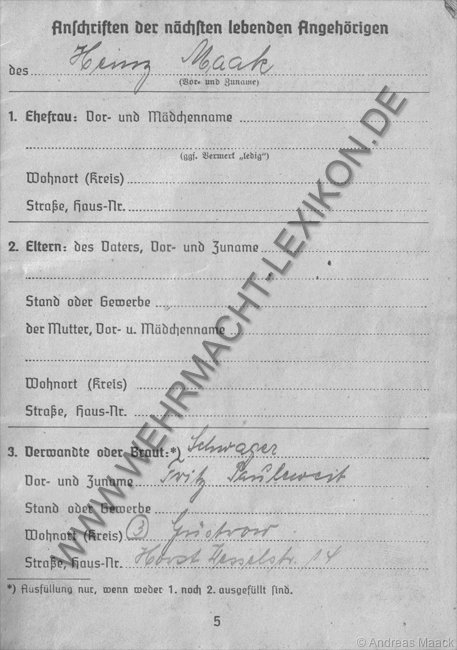 Anschriften der nächsten lebenden Angehörigen
des Heinz Maak
(Vor- und Zuname)
1. Ehefrau: Vor- und Mädchenname
(ggf. Vermerk „ledig")
Wohnort (Kreis)
Straße, Haus-Nr.
2. Eltern: des Vaters, Vor- und Zuname
Stand oder Gewerbe
der Mutter, Vor- u. Mädchenname
Wohnort (Kreis)
Straße, Haus-Nr.
3. Verwandte oder Braut:*) Schwager
Vor- und Zuname Fritz Pauleweit
Stand oder Gewerbe
Wohnort (Kreis) (3) Güstrow
Straße, Haus-Nr. Horst Wesselstr. 14
*) Ausfüllung nur, wenn weder 1. noch 2. ausgefüllt sind.
5
WWW.WEHRMACHT-LEXIKON.DE
© Andreas Maack